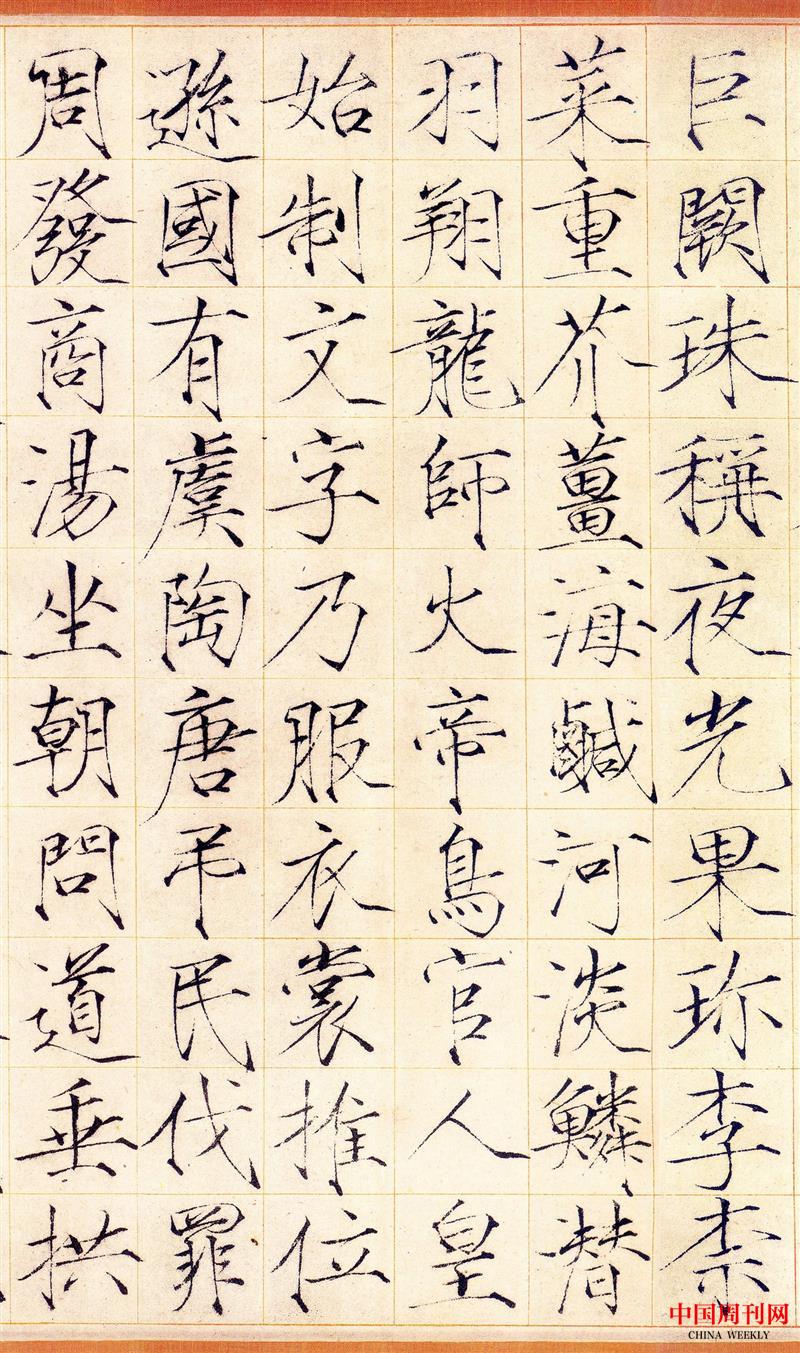 巨闕珠稱夜光果珎李柰
菜重芥薑海鹹河淡鱗潜
羽翔龍師火帝鳥官人皇
始制文字乃服衣裳推位
遜國有虞陶唐弔民伐罪
周發商湯坐朝問道垂拱
中国周刊网
CHINA WEEKLY